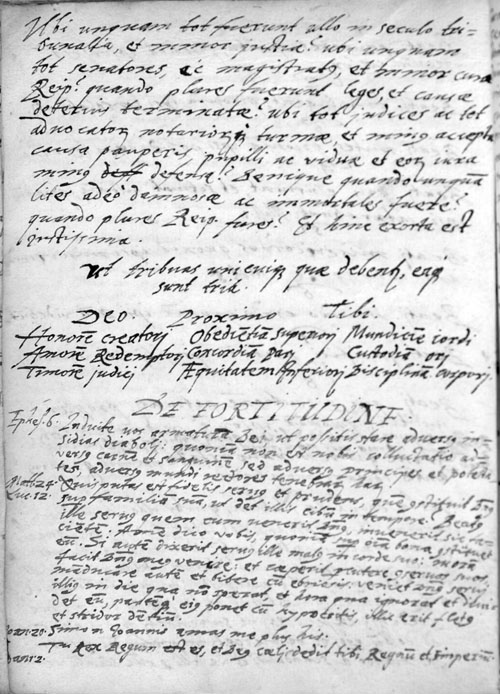 Ubi unquam tot fuerunt ullo in seculo tri-
bunalia, et minor justitia? ubi unquam
tot senatores, ac magistratꝰ, et minor cura
Reip? quando plures fuerunt leges, et causæ
deterius terminatæ? ubi tot judices ac tot
advocatorꝫ notariorꝫ turmæ, et minꝰ accepta
causa pauperis, pupilli ac viduæ et eorꝫ jura
minꝰ defensa? Denique quando unquã
lites adeo damnosæ ac immortales fuere?
quando plures Reip. fures? Et hinc exorta est
justissima.
Ut tribuas unicuiqꝫ quæ debentꝫ, eiqꝫ
sunt tria.
Deo. Proximo Tibi.
Honorẽ creatori Obediẽtiã superiori Mundiciẽ cordi
Amorẽ Redemptori Concordiã pari Custodiã ori
Timorẽ judici Æquitatem Inferiori Disciplinã corpori
DE FORTITUDINE
Ephes. 6. Induite vos armaturã Dei, ut possitis stare adversꝰ in-
sidias diaboli: quoniã non est nobis colluctatio ad-
versꝰ carnẽ et sanguinẽ sed adversꝰ principes et potesta-
tes, adversꝰ mundi rectores tenebrarꝫ harꝫ
Matt. 24. Quis putas est fidelis servꝰ et prudens, quẽ cõstituit Dñs
Luc. 12. sup familiam suã, ut det illis cibũ in tempore? Beatꝰ
ille servꝰ quem cum venerit Dñs, invenerit sic fa-
cietẽ. Amẽ dico vobis, quoniã sup oĩa bona cõstituet
eũ. Si autẽ dixerit servꝰ ille malꝰ in corde suo: morã
facit Dñs meꝰ venire: et cæperit percutere cõservos suos,
mãducare autẽ et bibere cũ ebriosis: veniet Dñs servi
illiꝰ in die qua nõ sperat, et hora qua ignorat et divi-
det eũ, partẽqꝫ eiꝰ ponet cũ hypocritis, illic erit fletꝰ
et stridor dẽtiũ.
Joan. 20. Simon Joannis amas me plus his.
Dan. 2. Tu Rex Regum es, et Deꝰ cæli dedit tibi Regnũ et Imperiũ